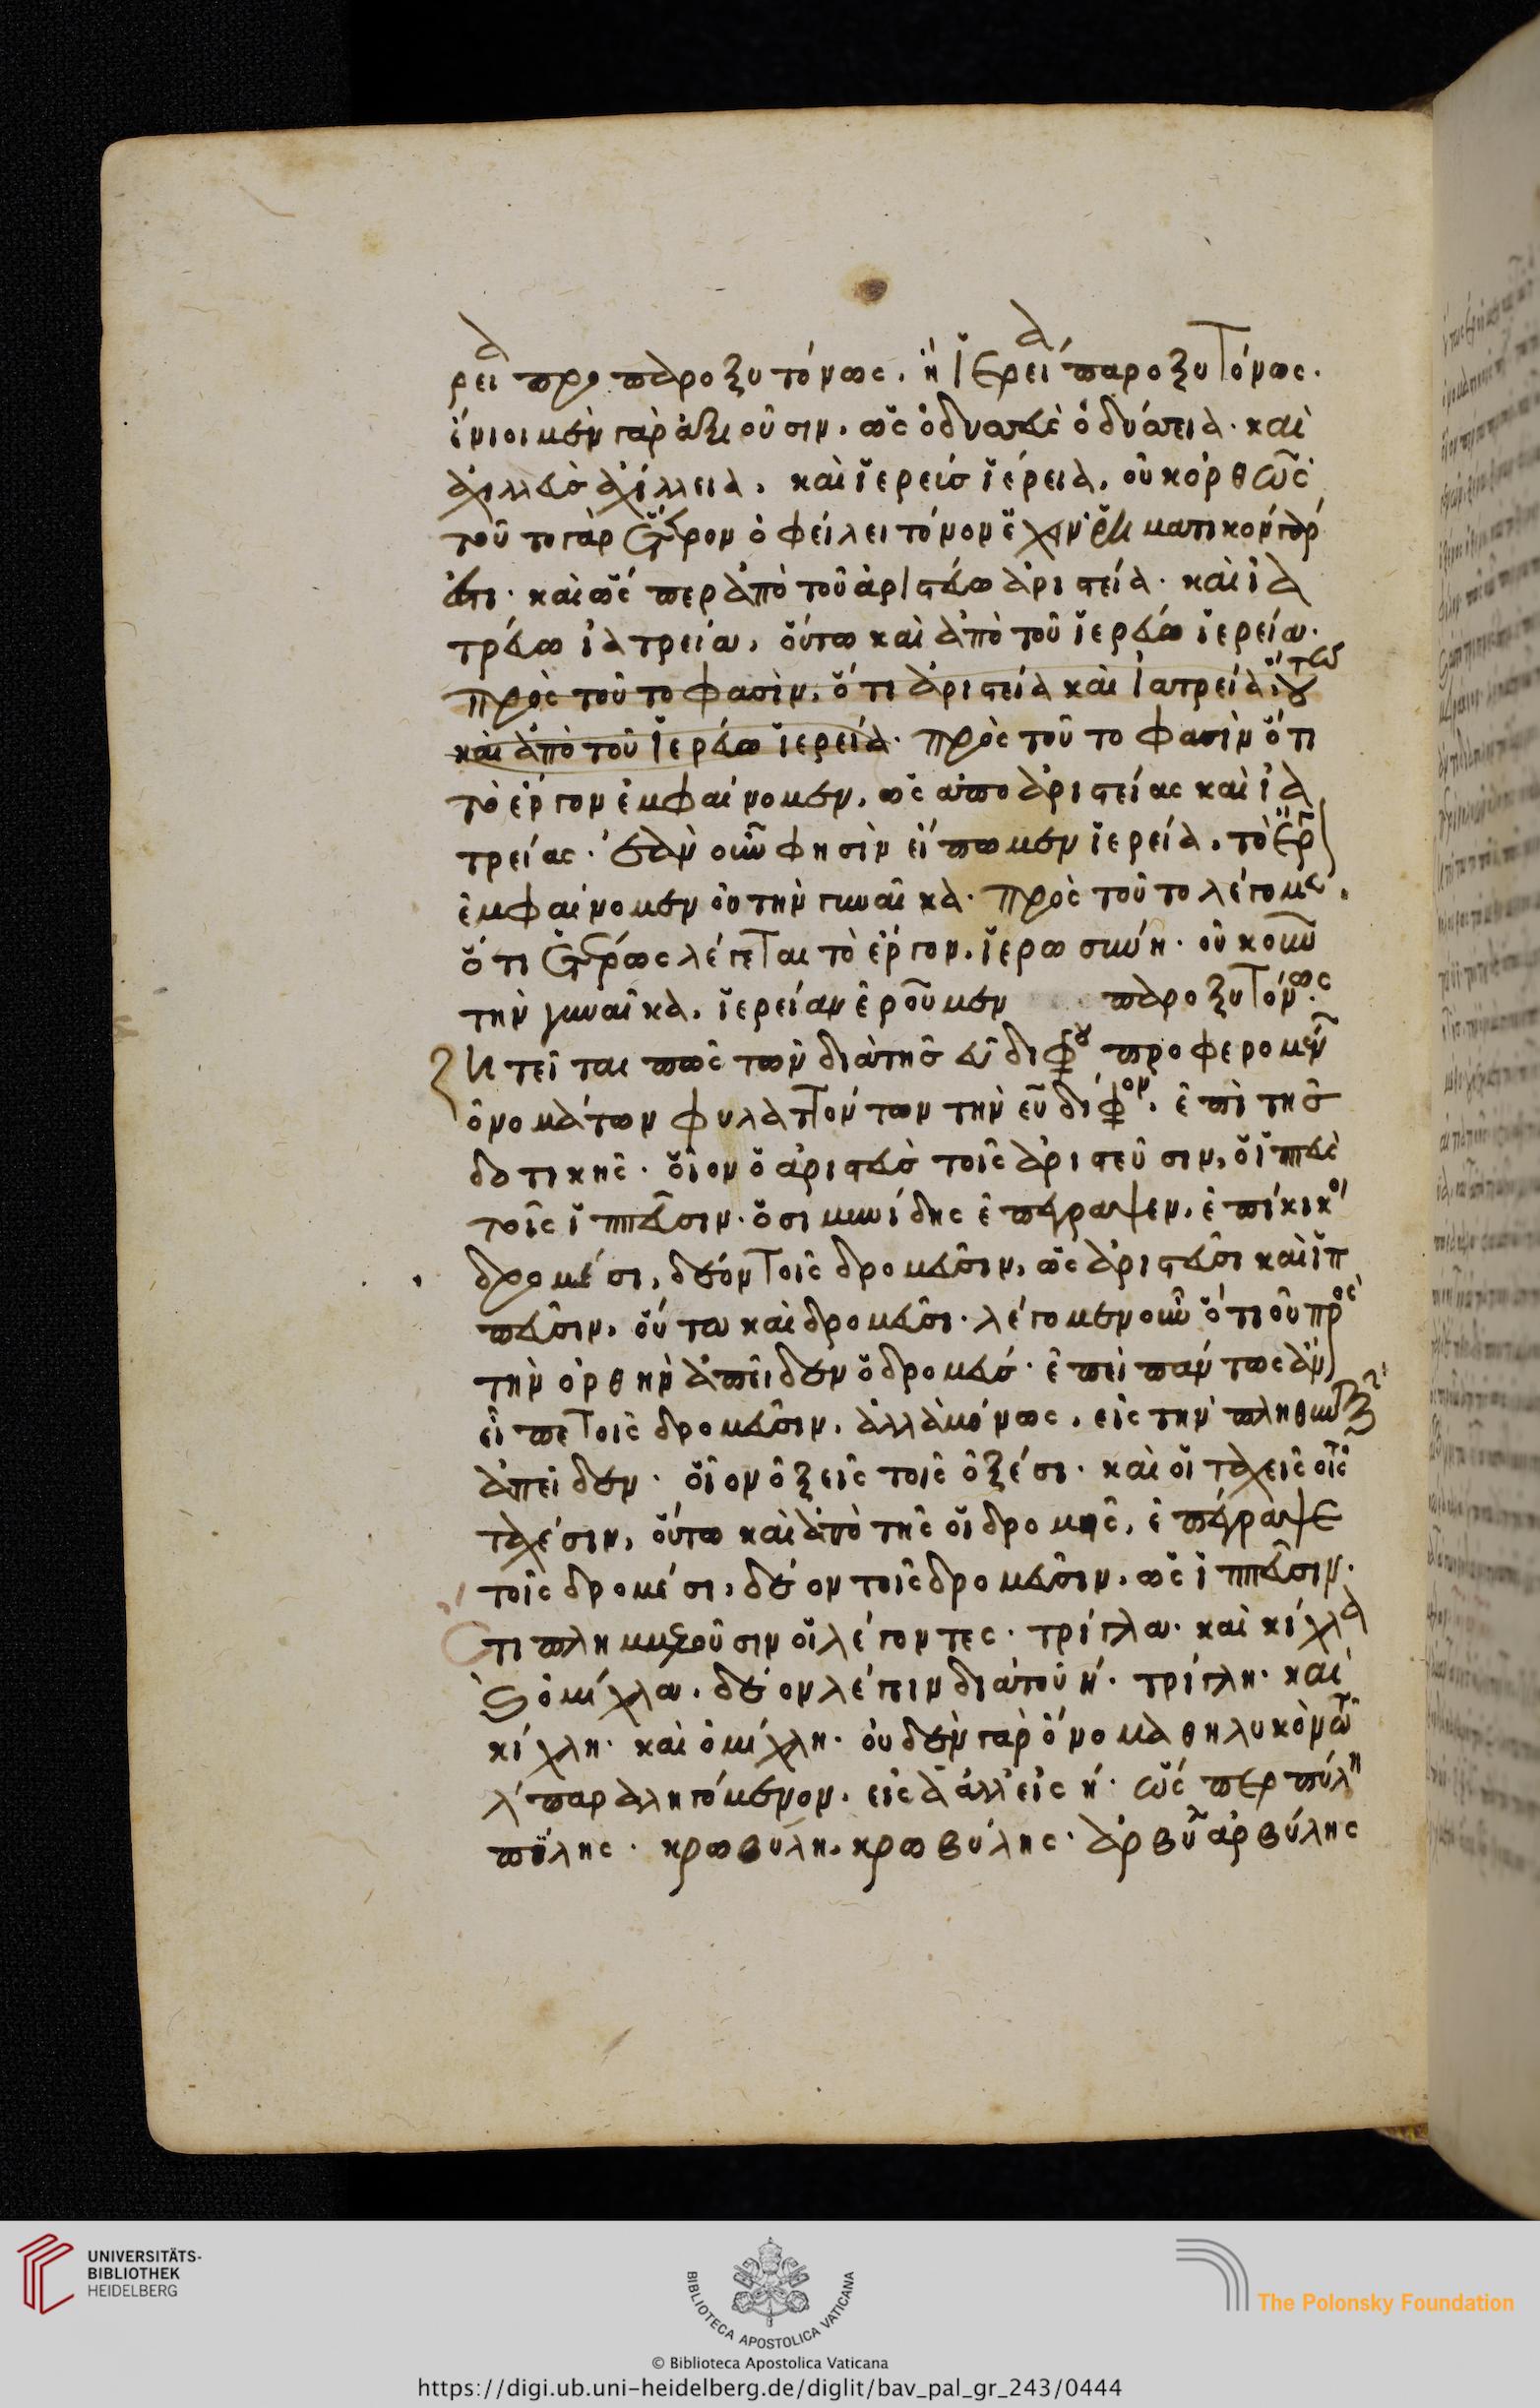 ρεια προπαροξυτόνως. ἢ ἱερεία παροξυτόνως.
ἔνιοι μὲν γὰρ ἀξιοῦσιν. ὡς ὀδυσσεὺς ὀδύσσεια. καὶ
ἀχιλλεὺς ἀχίλλεια. καὶ ἱερεὺς ἱέρεια. οὐκ ὀρθῶς
τοῦτο γὰρ ὀφείλει τόνον ἔχειν ῥηματικὸν γάρ
ἐστι. καὶ ὥσπερ ἀπὸ τοῦ ἀριστεύω ἀριστεία. καὶ ἰα
τρεύω ἰατρεία, οὕτω καὶ ἀπὸ τοῦ ἱερεύω ἱερεία.
πρὸς τοῦτο φασὶν, ὅτι ἀριστεία καὶ ἰατρεία οὕτω
καὶ ἀπὸ τοῦ ἱερεύω ἱερεία. πρὸς τοῦτο φασὶν ὅτι
τὸ ἔργον ἐμφαίνομεν, ὡς ἀπὸ ἀριστείας καὶ ἰα
τρείας. ἐὰν οὖν φησὶν εἴπωμεν ἱερεία. τὸ ἔργ
ἐμφαίνομεν οὐ τὴν γυναῖκα. πρὸς τοῦτο λέγομεν.
ὅτι ἑτέρως λέγεται τὸ ἔργον. ἱερωσύνη. οὐκοῦν
τὴν γυναῖκα. ἱερείαν ἐροῦμεν παροξυτόνως.
Ζητεῖται πῶς τῶν διὰ τῆς ευ διφθόγγου προφερομένων
ὀνομάτων φυλαττόντων τὴν ευ δίφθογγον. ἐπὶ τῆς
δοτικῆς. οἷον ὁ ἀριστεὺς τοῖς ἀριστεῦσιν, ὁ ἱππεὺς
τοῖς ἱππεῦσιν. ὁ σιμωνίδης ἐπέγραψεν. ἐπίνικοι
δρομέσι, δέον τοῖς δρομεῦσιν, ὡς ἀριστεῦσι καὶ ἱπ
πεῦσιν. οὕτω καὶ δρομεῦσι. λέγομεν οὖν ὅτι οὐ πρὸς
τὴν ὀρθὴν ἀπεῖδεν ὁ δρομεύς. ἐπεὶ πάντως ἂν
εἶπε τοῖς δρομεῦσιν. ἀλλὰ μόνως. εἰς τὴν πληθυντικὴν
ἀπεῖδεν. οἷον ὀξεῖς τοῖς ὀξέσι. καὶ οἱ ταχεῖς τοῖς
ταχέσιν, οὕτω καὶ ἀπὸ τῆς οἱ δρομῆς, ἐπέγραψε
τοῖς δρομέσι, δέον τοῖς δρομεῦσιν. ὡς ἱππεῦσιν.
Ὅτι πλημμελοῦσιν οἱ λέγοντες. τρίγλα. καὶ κίχλα
καὶ ὁμίχλα. δέον λέγειν διὰ τοῦ η. τρίγλη. καὶ
κίχλη. καὶ ὁμίχλη. οὐδὲν γὰρ ὄνομα θηλυκὸν τῷ
λ παραληγόμενον. εἰς α ἀλλ' εἰς η. ὥσπερ πύλη
πύλης. κρωβύλη. κρωβύλης. ἀρβύλη ἀρβύλης
UNIVERSITÄTS-
BIBLIOTHEK
HEIDELBERG
BIBLIOTECA APOSTOLICA VATICANA
The Polonsky Foundation
© Biblioteca Apostolica Vaticana
https://digi.ub.uni-heidelberg.de/diglit/bav_pal_gr_243/0444